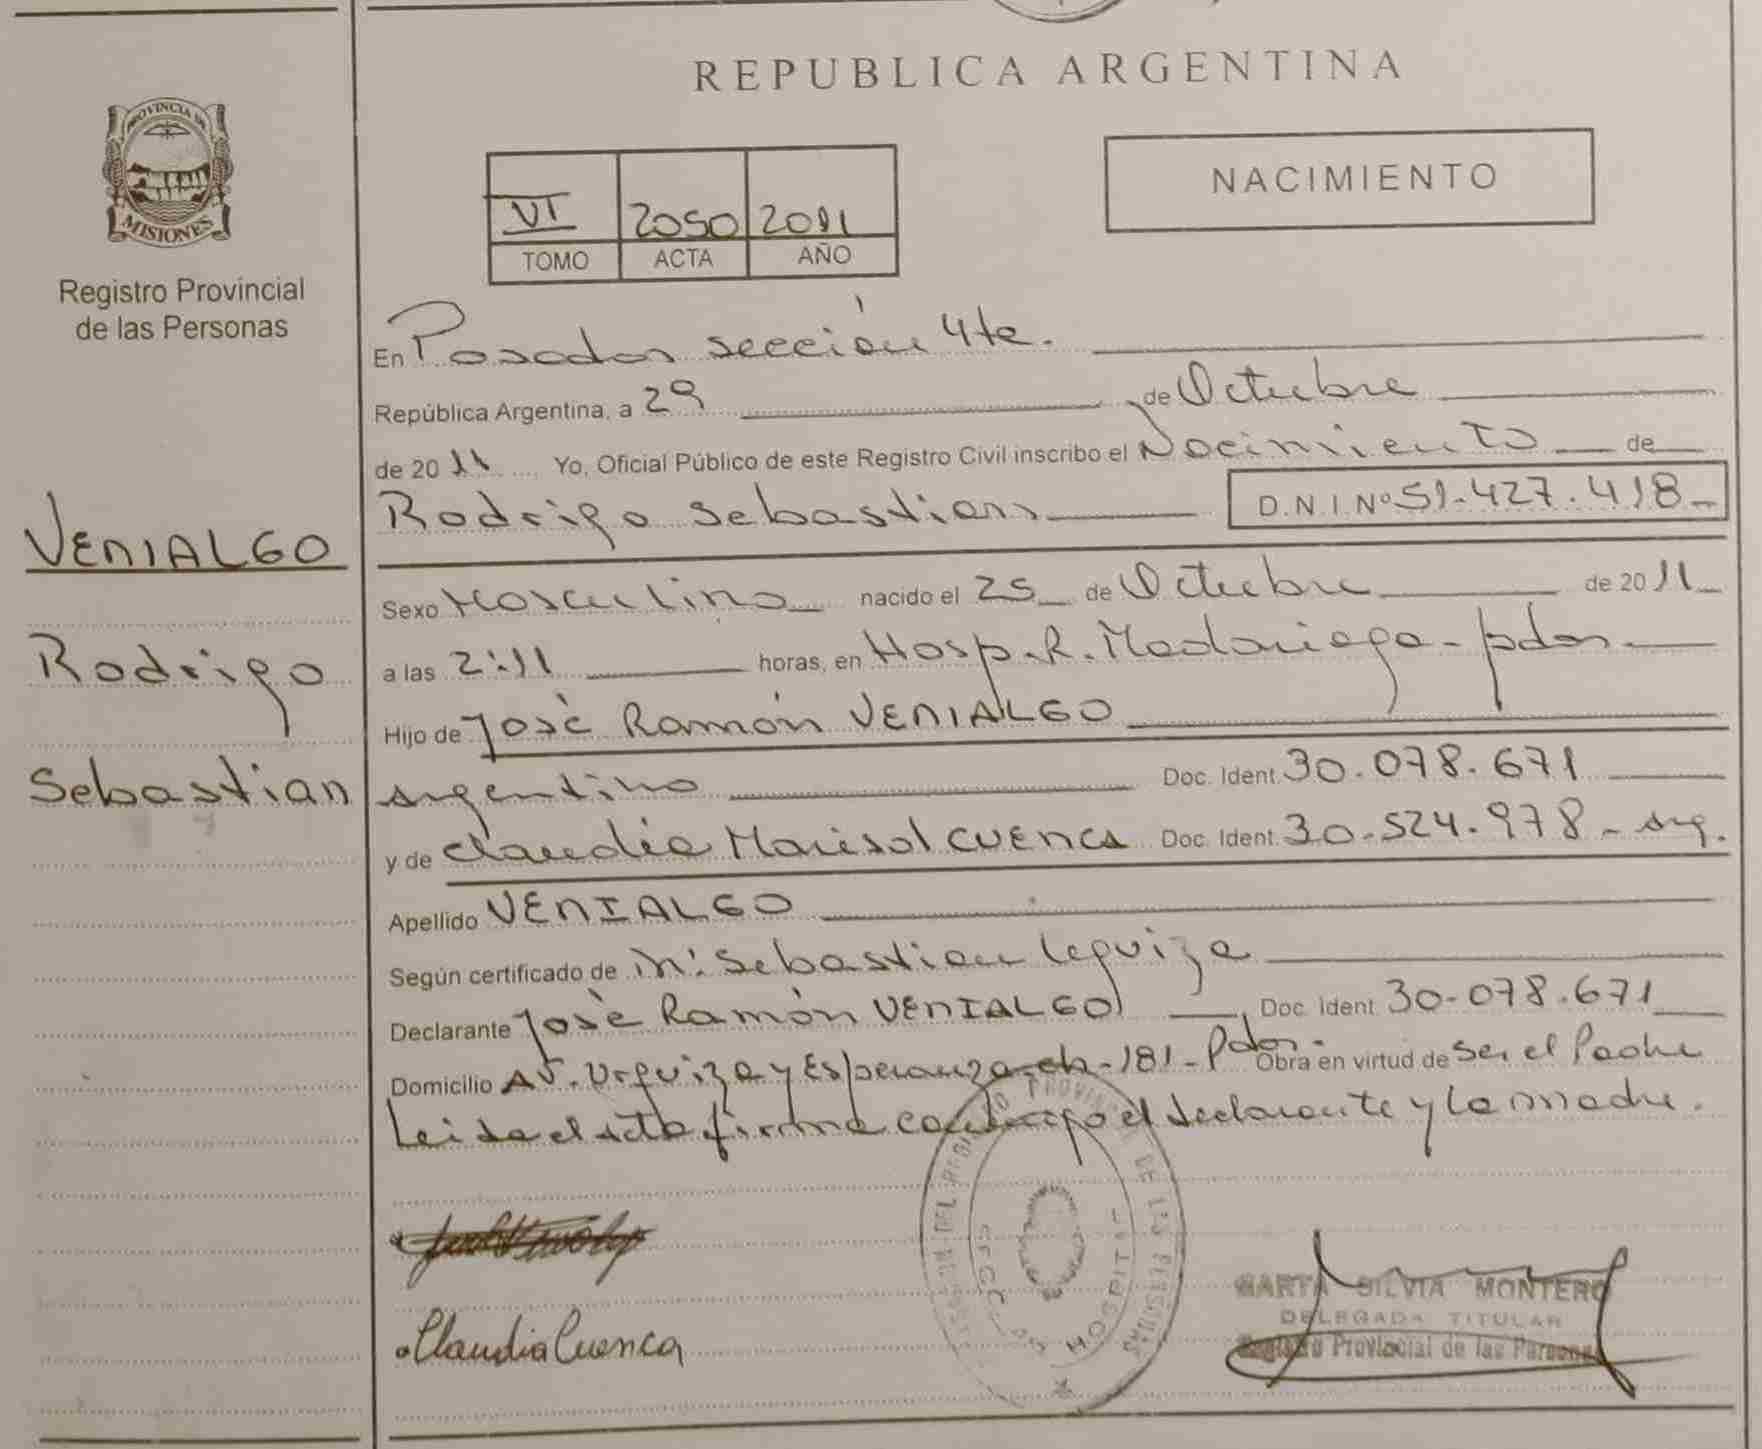 REPUBLICA ARGENTINA
PROVINCIA DE
MISIONES
Registro Provincial
de las Personas
NACIMIENTO
VI 2050 2011
TOMO ACTA AÑO
En Posadas sección 4ta.
República Argentina, a 29 de Octubre
de 2011 Yo, Oficial Público de este Registro Civil inscribo el Nacimiento de
Rodrigo Sebastian D.N.I. Nº 51.427.418
VENIALGO
Rodrigo
Sebastian
Sexo Masculino nacido el 25 de Octubre de 2011
a las 2:11 horas, en Hosp. R. Madariaga - pdas
Hijo de José Ramón VENIALGO
argentino Doc. Ident. 30.078.671
y de Claudia Marisol CUENCA Doc. Ident. 30.524.978 - arg.
Apellido VENIALGO
Según certificado de Sebastian Leguiza
Declarante José Ramón VENIALGO Doc. Ident. 30.078.671
Domicilio Av. Urquiza y Esperanza ch-181-Pdas. Obra en virtud de ser el Padre
Leida el acta firma conmigo el declarante y la madre.
Claudia Cuenca
HOSPITAL
MARTA SILVIA MONTERO
DELEGADA TITULAR
Registro Provincial de las Personas